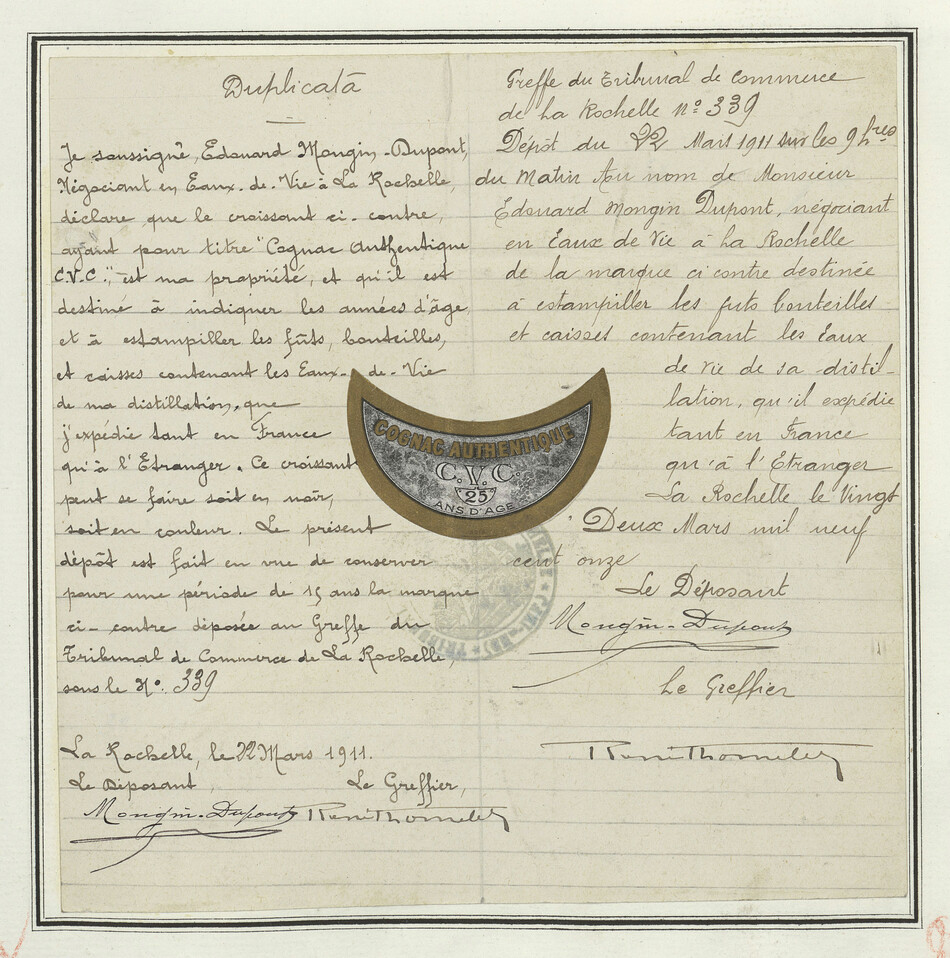 Duplicata
Je soussigné, Edouard Mongin-Dupont,
Négociant en Eaux-de-Vie à La Rochelle,
déclare que le croissant ci-contre,
ayant pour titre "Cognac Authentique
C.V.C.", est ma propriété, et qu'il est
destiné à indiquer les années d'âge,
et à estampiller les fûts, bouteilles,
et caisses contenant les Eaux-de-Vie
de ma distillation, que
j'expédie tant en France
qu'à l'Etranger. Ce croissant
peut se faire soit en noir,
soit en couleur. Le présent
dépôt est fait en vue de conserver
pour une période de 15 ans la marque
ci-contre déposée au Greffe du
Tribunal de Commerce de La Rochelle,
sous le No. 339
La Rochelle, le 22 Mars 1911.
Le Déposant, Le Greffier,
Mongin-Dupont
Greffe du Tribunal de Commerce
de La Rochelle No 339
Dépôt du 22 Mars 1911 sur les 9 hres
du Matin Au nom de Monsieur
Edouard Mongin Dupont, négociant
en Eaux de Vie à La Rochelle
de la marque ci contre destinée
à estampiller les futs bouteilles
et caisses contenant les Eaux
de vie de sa distil-
lation, qu'il expédie
tant en France
qu'à l'Etranger
La Rochelle le Vingt
Deux Mars mil neuf
cent onze
Le Déposant
Mongin-Dupont
Le Greffier
COGNAC AUTHENTIQUE
C.V.C.
25
ANS D'AGE